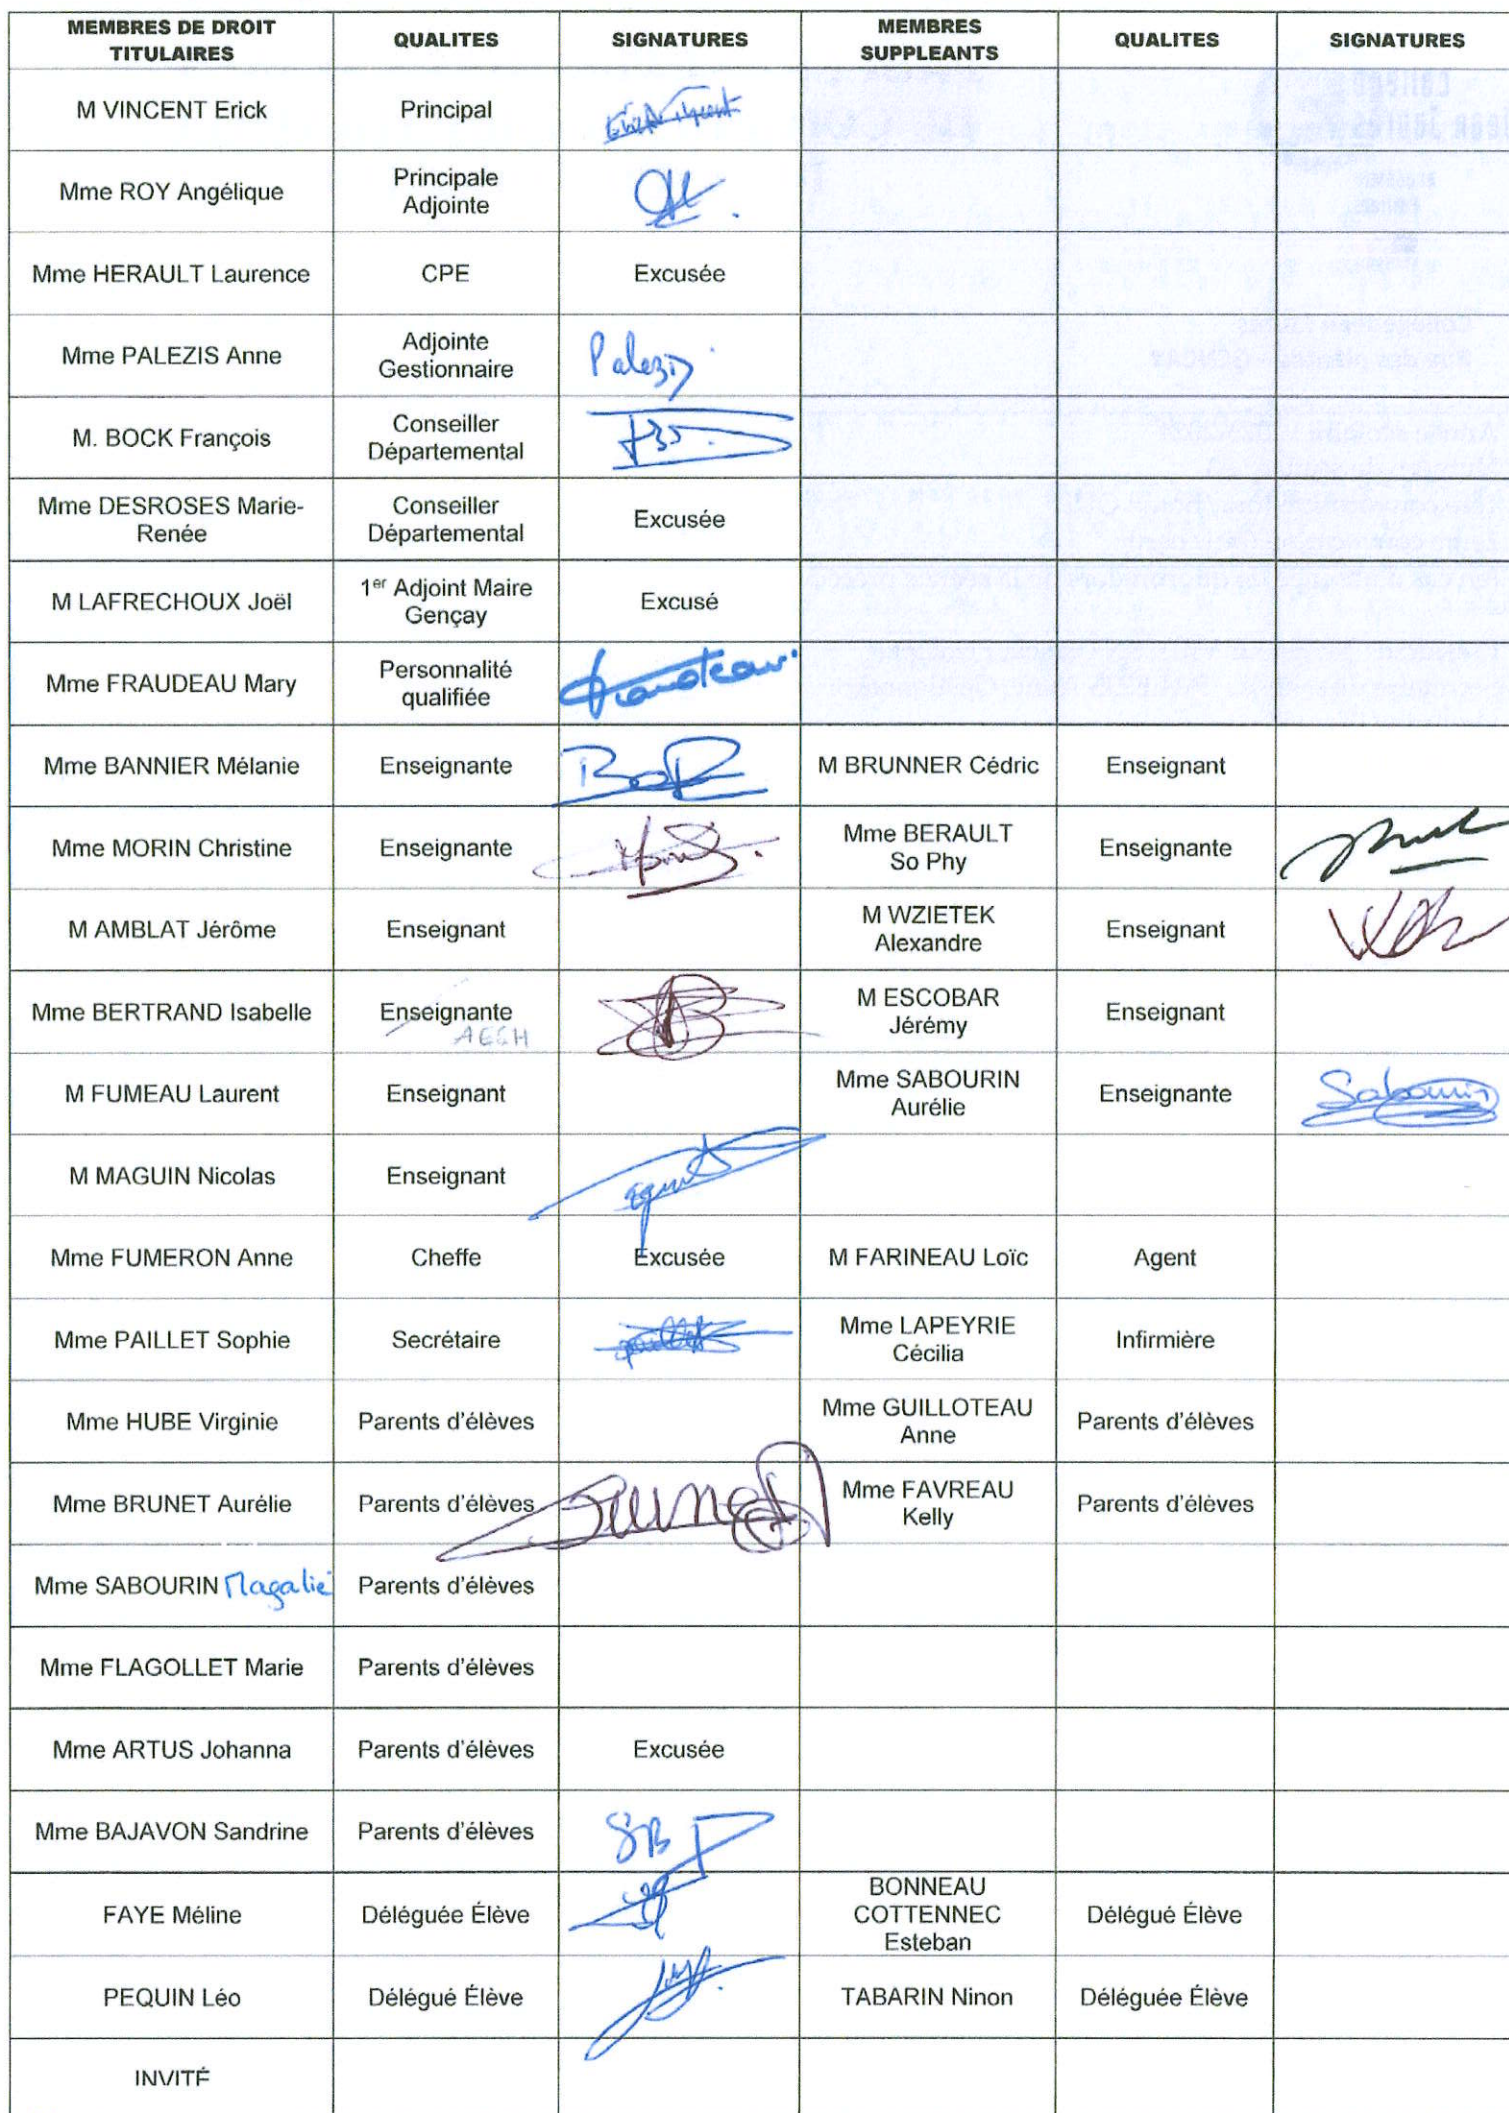 MEMBRES DE DROIT TITULAIRES QUALITES SIGNATURES MEMBRES SUPPLEANTS QUALITES SIGNATURES
M VINCENT Erick Principal
Mme ROY Angélique Principale Adjointe
Mme HERAULT Laurence CPE Excusée
Mme PALEZIS Anne Adjointe Gestionnaire Palezis
M. BOCK François Conseiller Départemental
Mme DESROSES Marie-Renée Conseiller Départemental Excusée
M LAFRECHOUX Joël 1er Adjoint Maire Gençay Excusé
Mme FRAUDEAU Mary Personnalité qualifiée
Mme BANNIER Mélanie Enseignante M BRUNNER Cédric Enseignant
Mme MORIN Christine Enseignante Mme BERAULT So Phy Enseignante
M AMBLAT Jérôme Enseignant M WZIETEK Alexandre Enseignant
Mme BERTRAND Isabelle Enseignante AESH M ESCOBAR Jérémy Enseignant
M FUMEAU Laurent Enseignant Mme SABOURIN Aurélie Enseignante Sabourin
M MAGUIN Nicolas Enseignant
Mme FUMERON Anne Cheffe Excusée M FARINEAU Loïc Agent
Mme PAILLET Sophie Secrétaire Mme LAPEYRIE Cécilia Infirmière
Mme HUBE Virginie Parents d'élèves Mme GUILLOTEAU Anne Parents d'élèves
Mme BRUNET Aurélie Parents d'élèves Brunet Mme FAVREAU Kelly Parents d'élèves
Mme SABOURIN Magalie Parents d'élèves
Mme FLAGOLLET Marie Parents d'élèves
Mme ARTUS Johanna Parents d'élèves Excusée
Mme BAJAVON Sandrine Parents d'élèves SB
FAYE Méline Déléguée Élève BONNEAU COTTENNEC Esteban Délégué Élève
PEQUIN Léo Délégué Élève TABARIN Ninon Déléguée Élève
INVITÉ